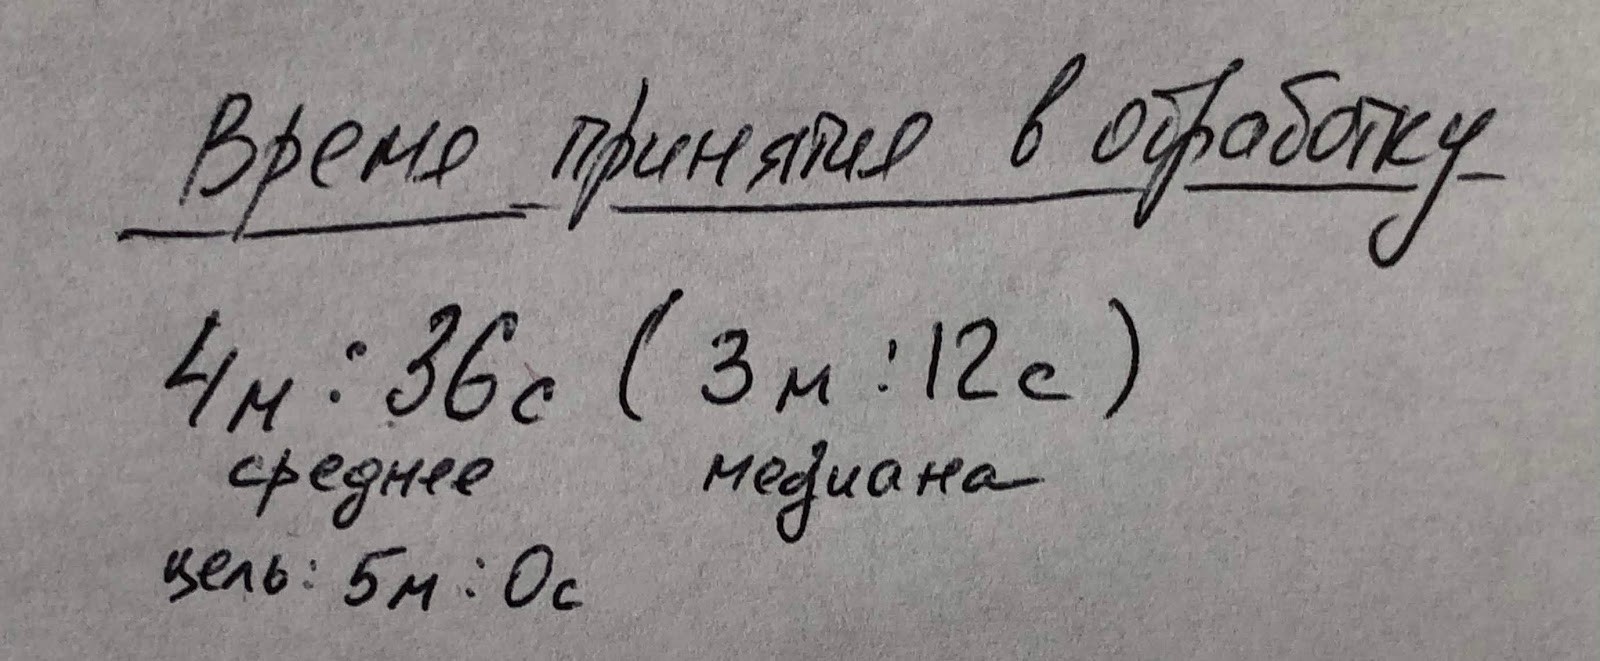 Время принятия в обработку
4м:36с (3м:12с)
среднее медиана
цель: 5м:0с